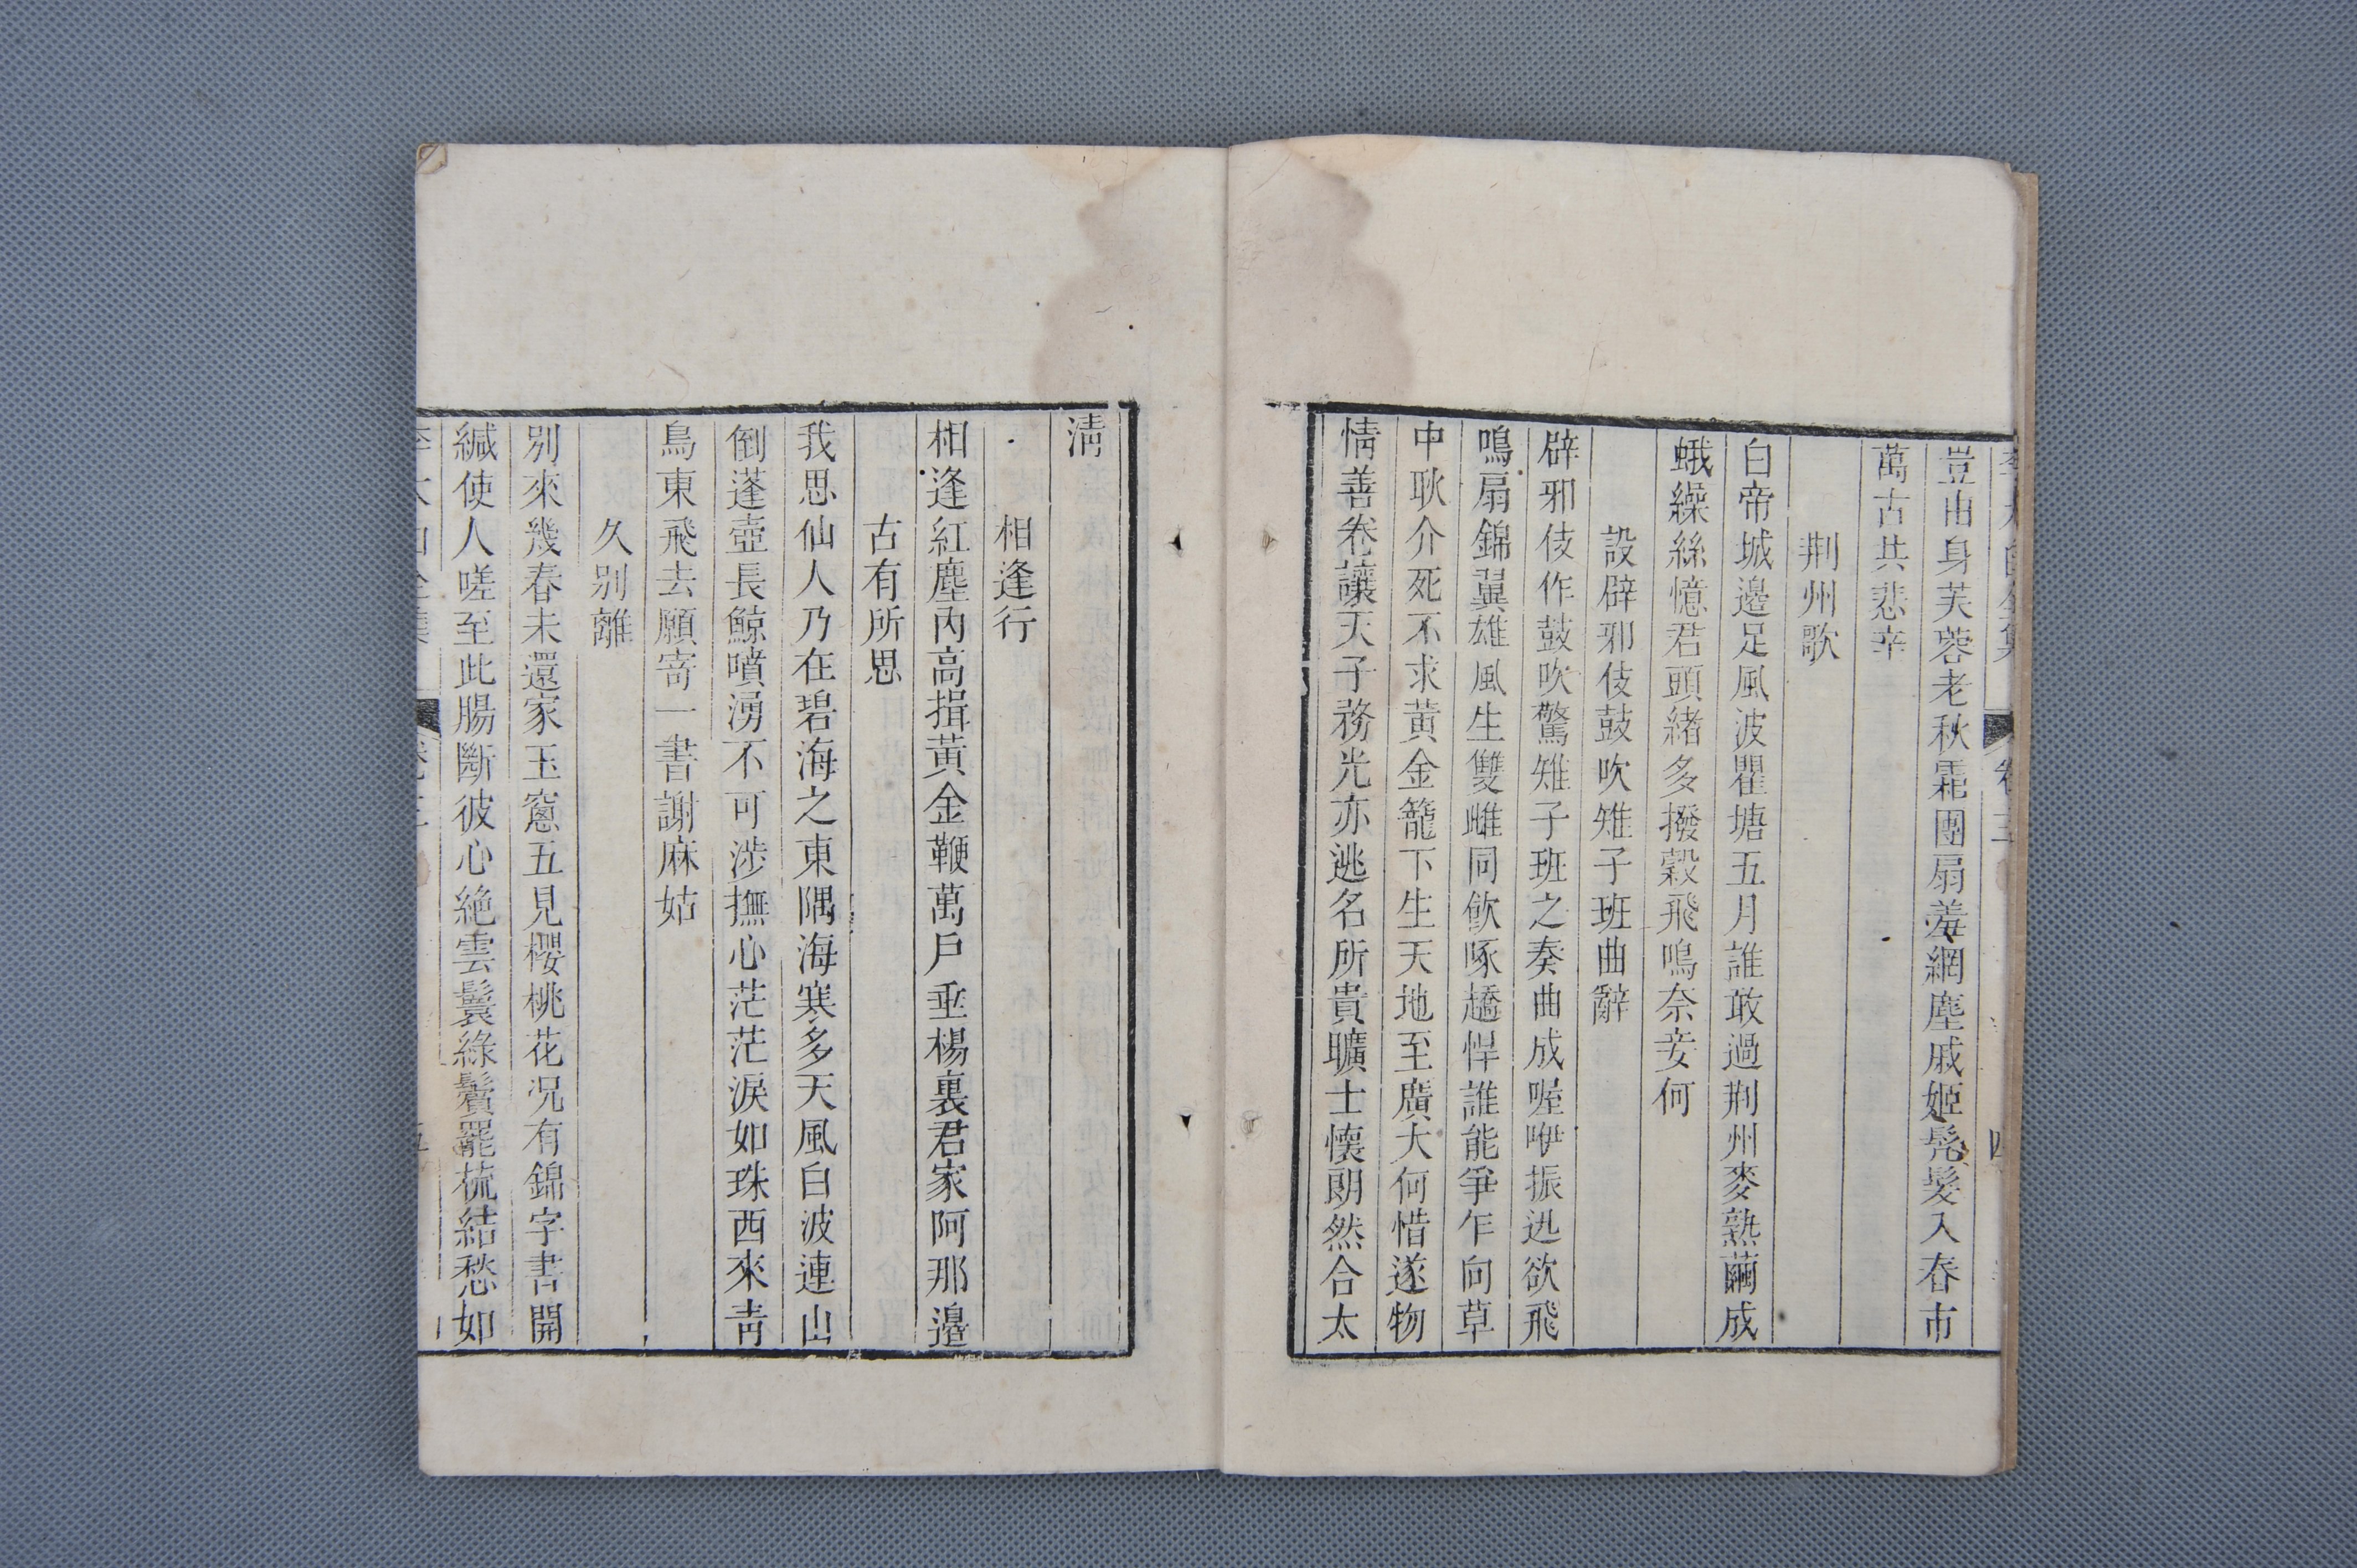 豈由身芙蓉老秋霜團扇羞網塵戚姬髠髮入舂市
萬古共悲辛
荆州歌
白帝城邊足風波瞿塘五月誰敢過荆州麥熟繭成
蛾繰絲憶君頭緒多撥穀飛鳴奈妾何
設辟邪伎鼓吹雉子班曲辭
辟邪伎作鼓吹驚雉子班之奏曲成喔咿振迅欲飛
鳴扇錦翼雄風生雙雌同飲啄趫悍誰能爭乍向草
中耿介死不求黃金籠下生天地至廣大何惜遂物
情善卷讓天子務光亦逃名所貴曠士懷朗然合太
淸
相逢行
相逢紅塵內高揖黃金鞭萬戶垂楊裏君家阿那邊
古有所思
我思仙人乃在碧海之東隅海寒多天風白波連山
倒蓬壺長鯨噴湧不可涉撫心茫茫淚如珠西來靑
鳥東飛去願寄一書謝麻姑
久別離
別來幾春未還家玉窻五見櫻桃花況有錦字書開
緘使人嗟至此腸斷彼心絕雲鬟綠鬢罷梳結愁如